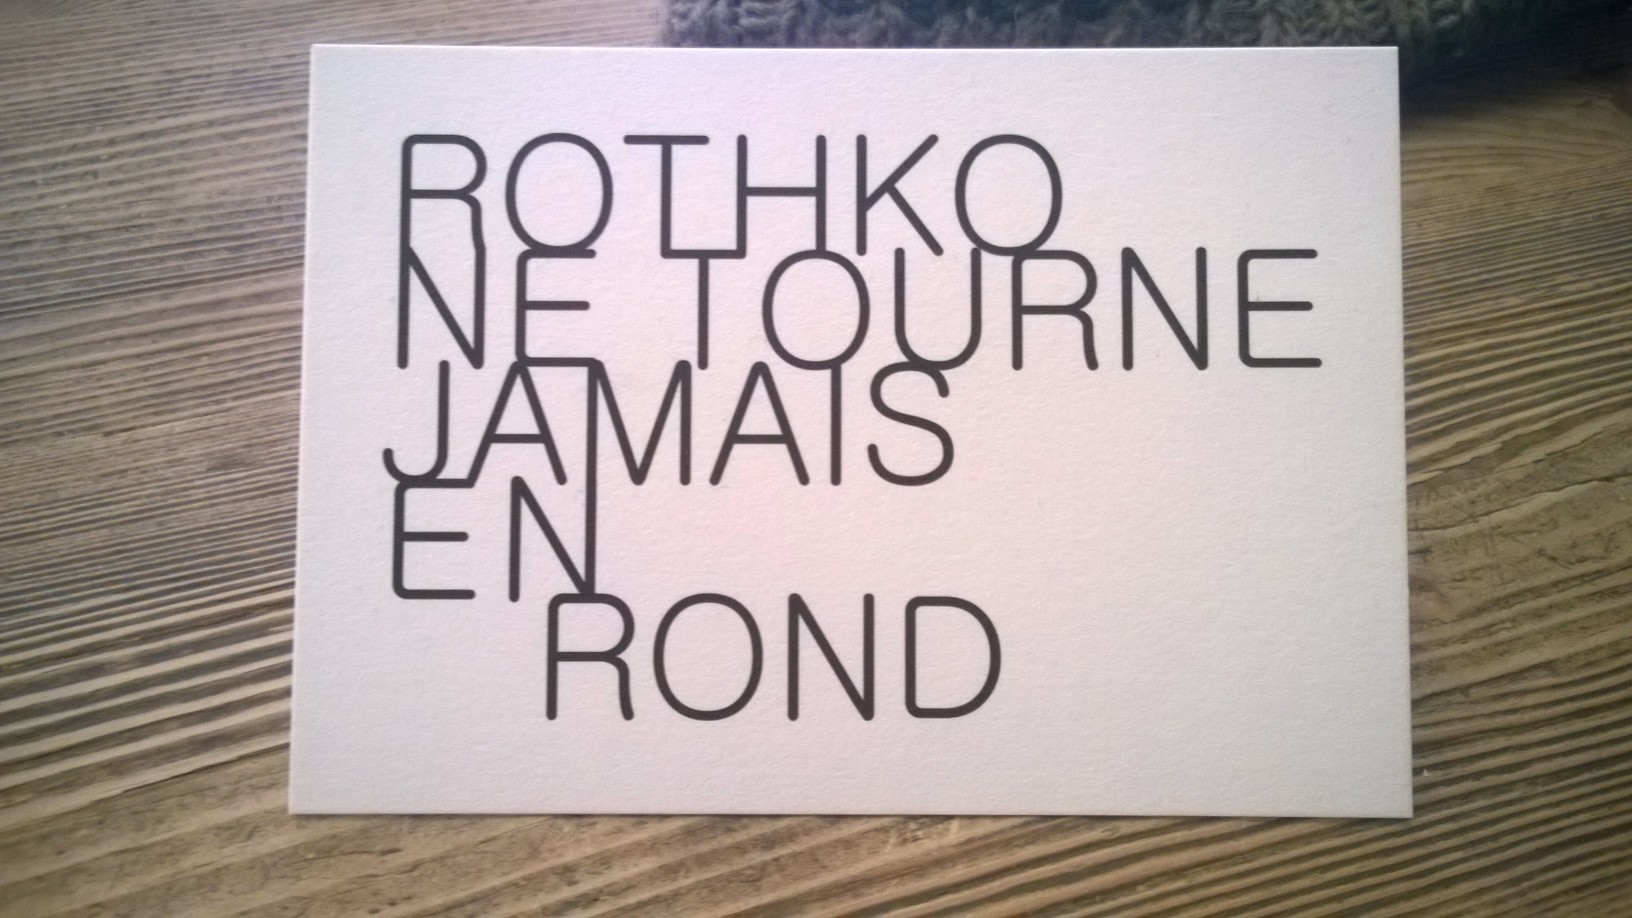 ROTHKO
NE TOURNE
JAMAIS
EN
ROND